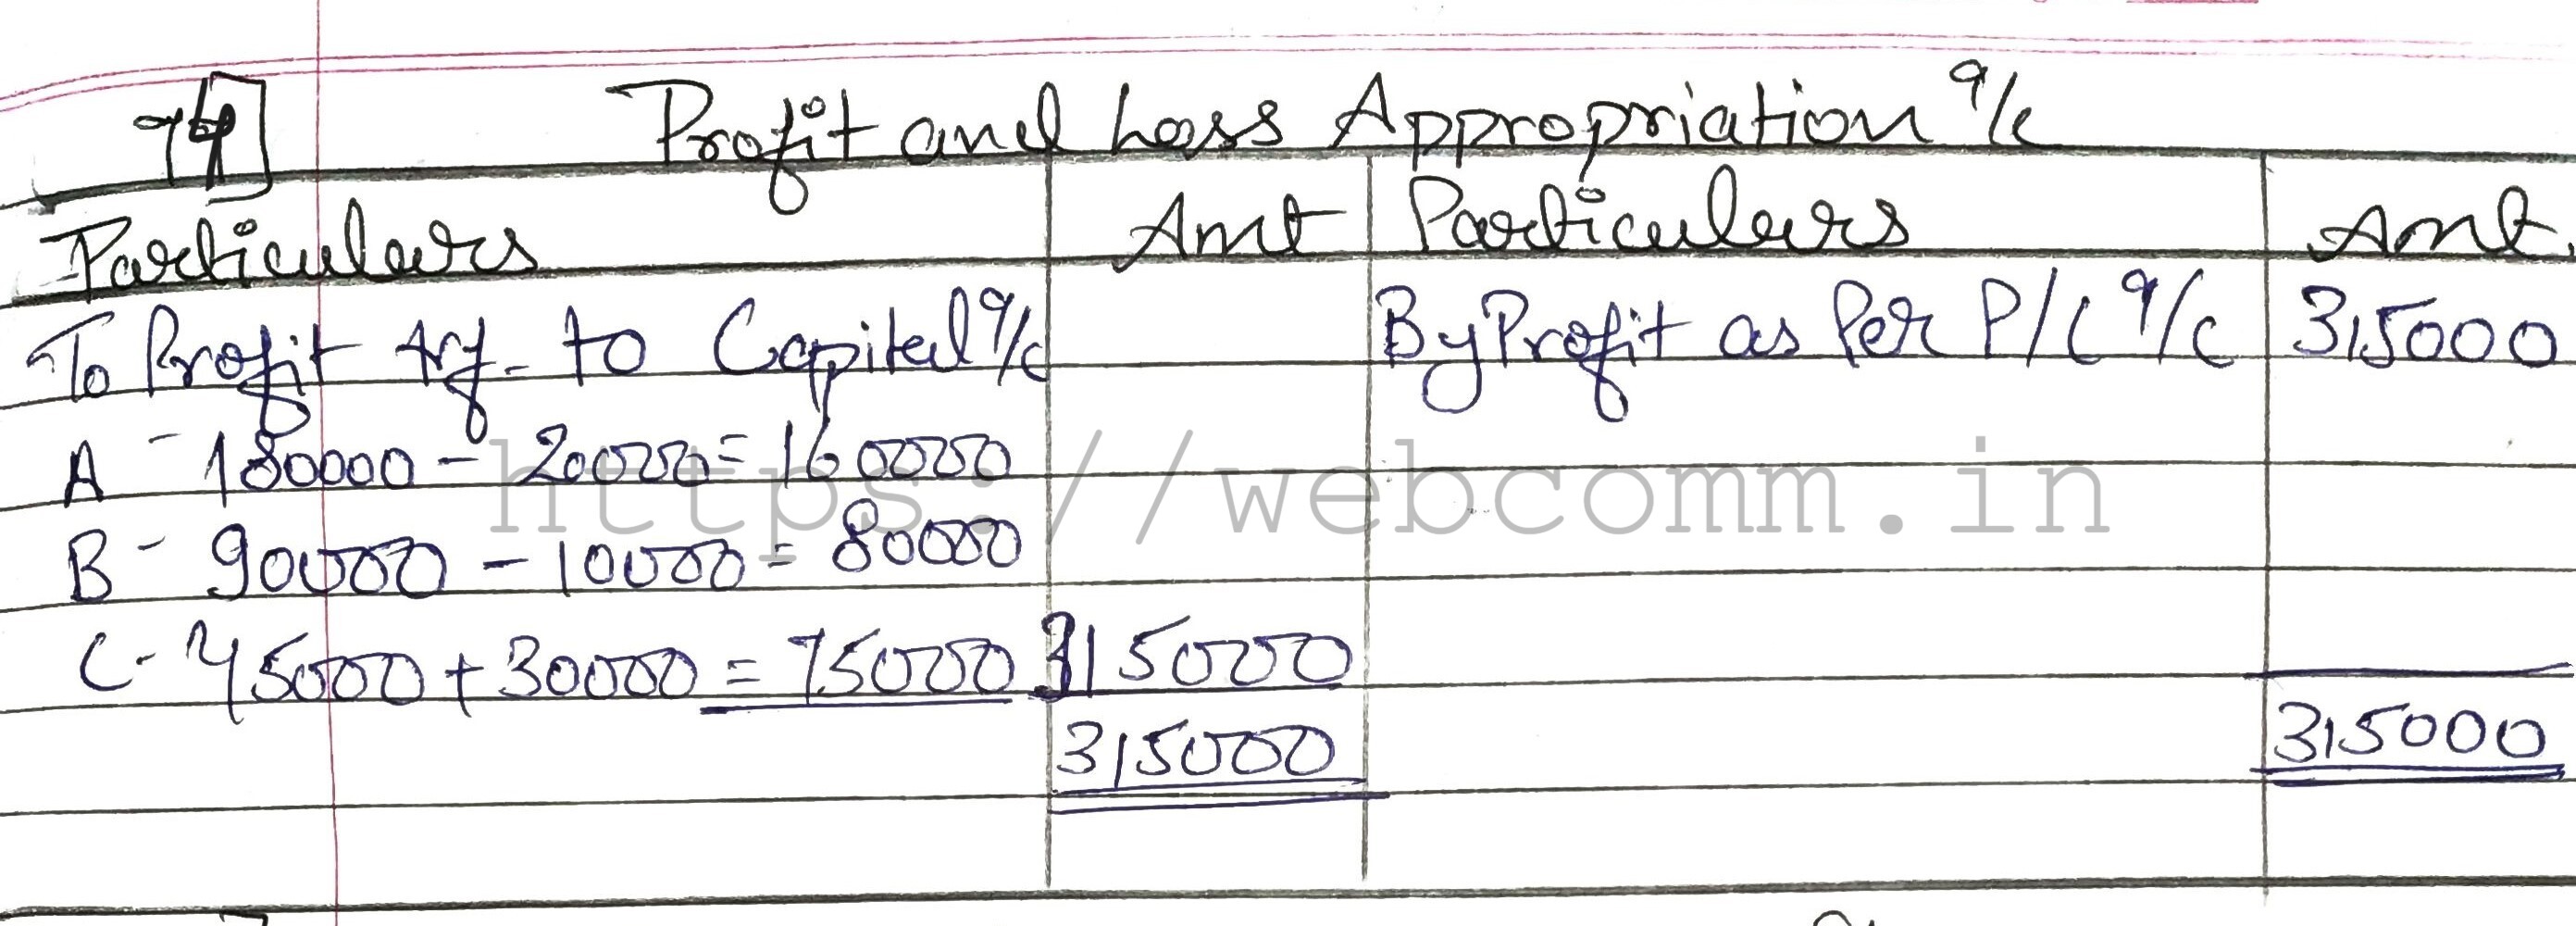 74 Profit and Loss Appropriation a/c
Particulars Amt Particulars Amt.
To Profit trf. to Capital a/c By Profit as Per P/L a/c 315000
A - 180000 - 20000 = 160000
https://webcomm.in
B - 90000 - 10000 = 80000
C - 45000 + 30000 = 75000 315000
315000 315000